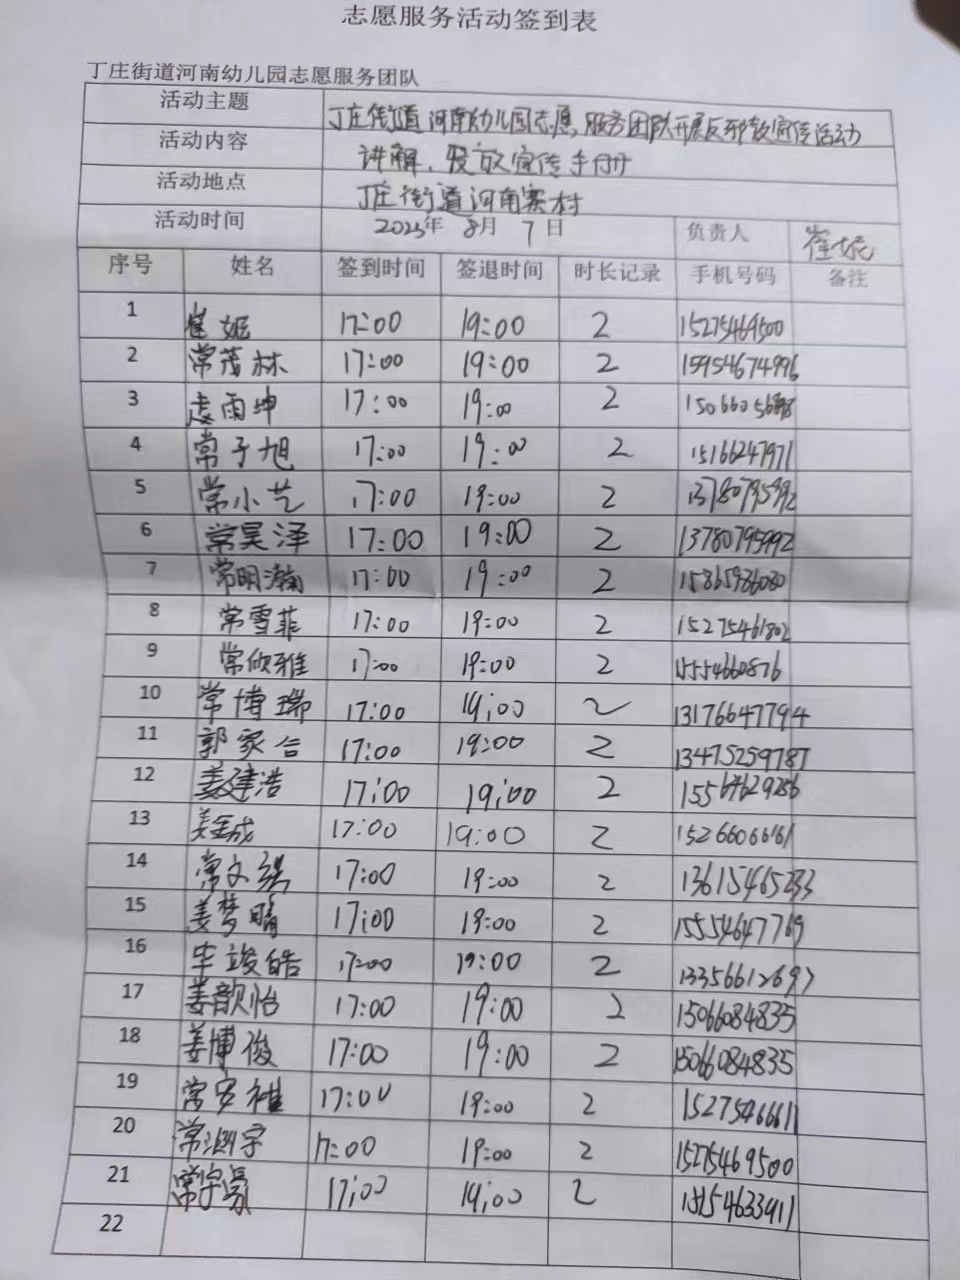 志愿服务活动签到表
丁庄街道河南幼儿园志愿服务团队
活动主题 丁庄街道河南幼儿园志愿服务团队开展反邪教宣传活动
活动内容 讲解、发放宣传手册
活动地点 丁庄街道河南寨村
活动时间 2025年 8月 7日 负责人 崔姬
序号 姓名 签到时间 签退时间 时长记录 手机号码 备注
1 崔姬 17:00 19:00 2 15275469500
2 常茂林 17:00 19:00 2 15954674996
3 雨坤 17:00 19:00 2
4 常子旭 17:00 19:00 2 15166247971
5 常小艺 17:00 19:00 2 13780795992
6 常昊泽 17:00 19:00 2 13780795992
7 常明瀚 17:00 19:00 2 15865986080
8 常雪菲 17:00 19:00 2 15275461802
9 常欣雅 17:00 19:00 2 15554660876
10 常博瑞 17:00 19:00 2 13176647794
11 郭家合 17:00 19:00 2 13475259787
12 姜建浩 17:00 19:00 2
13 姜金成 17:00 19:00 2 15266066161
14 常文 17:00 19:00 2 13615465233
15 姜梦晴 17:00 19:00 2 15554647769
16 毕竣皓 17:00 19:00 2 13356612697
17 姜歆怡 17:00 19:00 2 15066084835
18 姜博俊 17:00 19:00 2 15066084835
19 常安 17:00 19:00 2 15275466611
20 常涵宇 17:00 19:00 2 15275469500
21 常宇 17:00 19:00 2
22